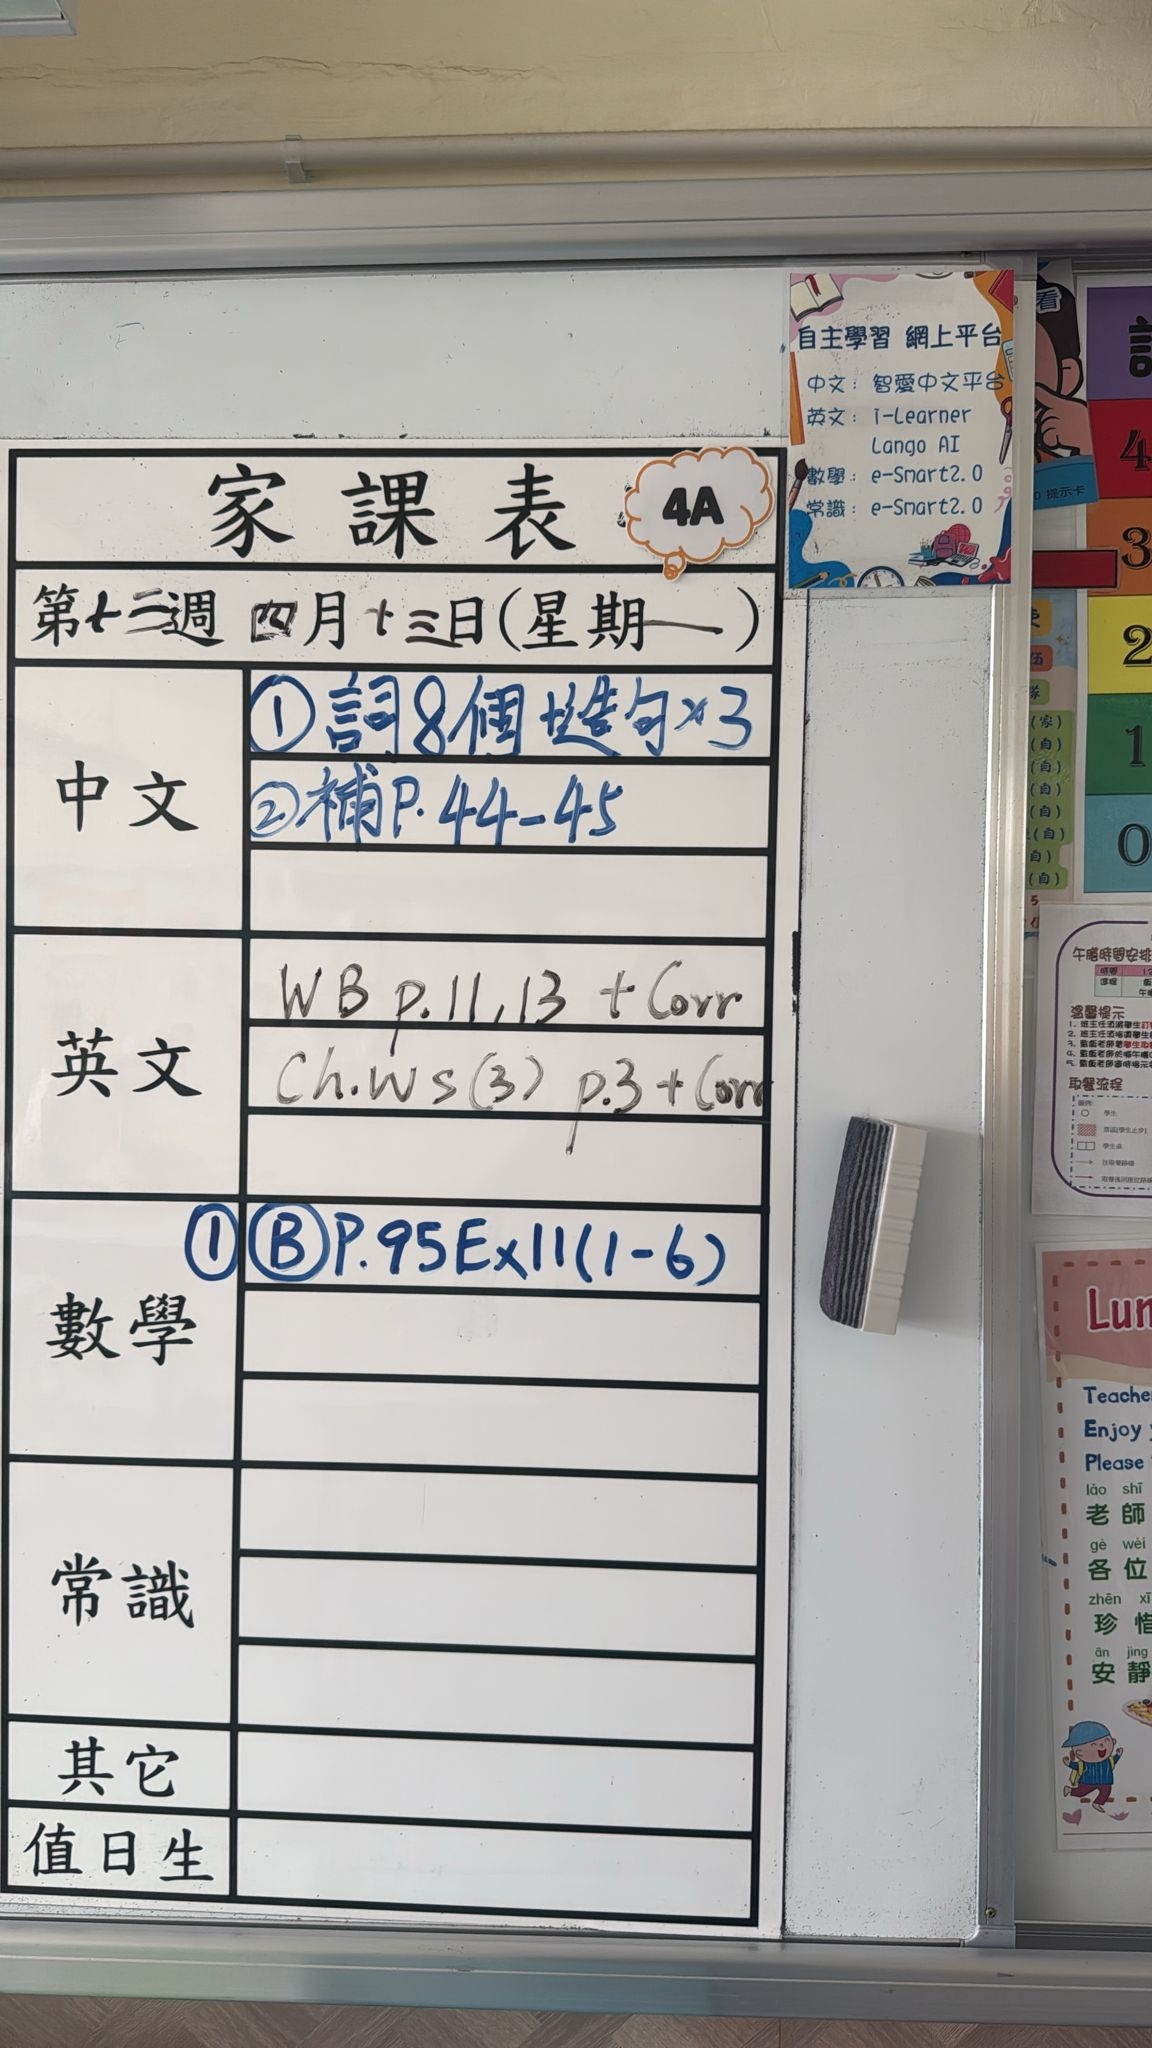 家課表
4A
第十二週 四月十三日(星期一)
中文
①詞8個+造句×3
②補P.44-45
英文
WB p.11,13 + Corr
Ch.WS(3) p.3 + Corr
數學
① Ⓑ P.95Ex11(1-6)
常識
其它
值日生
自主學習 網上平台
中文：智愛中文平台
英文：i-Learner
Lango AI
數學：e-Smart2.0
常識：e-Smart2.0
看
提示卡
4
3
2
1
0
(家)
(自)
(自)
(自)
(自)
(自)
(自)
(自)
午膳時間安排
溫馨提示
取餐流程
學生
Lun
Teache
Enjoy
Please
lǎo shī
老師
gè wèi
各位
zhēn xī
珍惜
ān jìng
安靜